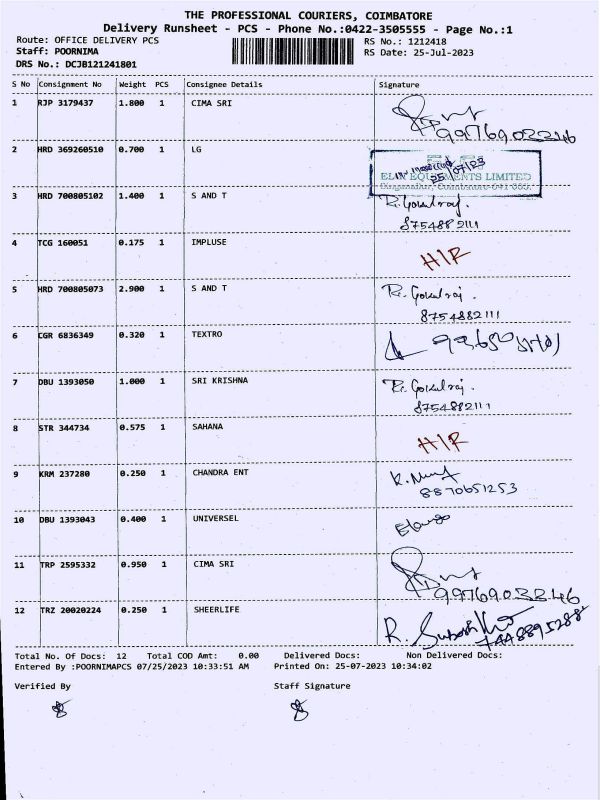 THE PROFESSIONAL COURIERS, COIMBATORE
Delivery Runsheet - PCS - Phone No.:0422-3505555 - Page No.:1
Route: OFFICE DELIVERY PCS
RS No.: 1212418
Staff: POORNIMA
RS Date: 25-Jul-2023
DRS No.: DCJB121241801
S No Consignment No Weight PCS Consignee Details Signature
1 RJP 3179437 1.800 1 CIMA SRI
9976903246
2 HRD 369260510 0.700 1 LG
25/07/23
ELAN EQUIPMENTS LIMITED
3 HRD 700805102 1.400 1 S AND T R. Gokulraj.
8754882111
4 TCG 160051 0.175 1 IMPLUSE H/R
5 HRD 700805073 2.900 1 S AND T R. Gokulraj.
8754882111
6 CGR 6836349 0.320 1 TEXTRO
7 DBU 1393050 1.000 1 SRI KRISHNA R. Gokulraj.
8754882111
8 STR 344734 0.575 1 SAHANA H/R
9 KRM 237280 0.250 1 CHANDRA ENT
8870651253
10 DBU 1393043 0.400 1 UNIVERSEL
11 TRP 2595332 0.950 1 CIMA SRI
9976903246
12 TRZ 20020224 0.250 1 SHEERLIFE R.
Total No. Of Docs: 12 Total COD Amt: 0.00 Delivered Docs: Non Delivered Docs:
Entered By :POORNIMAPCS 07/25/2023 10:33:51 AM Printed On: 25-07-2023 10:34:02
Verified By Staff Signature